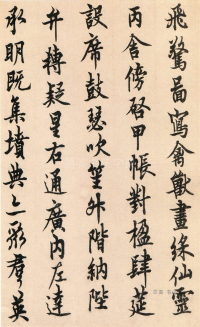 飛驚啚寫禽獸畫綵仙靈
丙舍傍啓甲帳對楹肆筵
設席鼓瑟吹笙升階納陛
弁轉疑星右通廣內左達
承明既集墳典亦聚群英